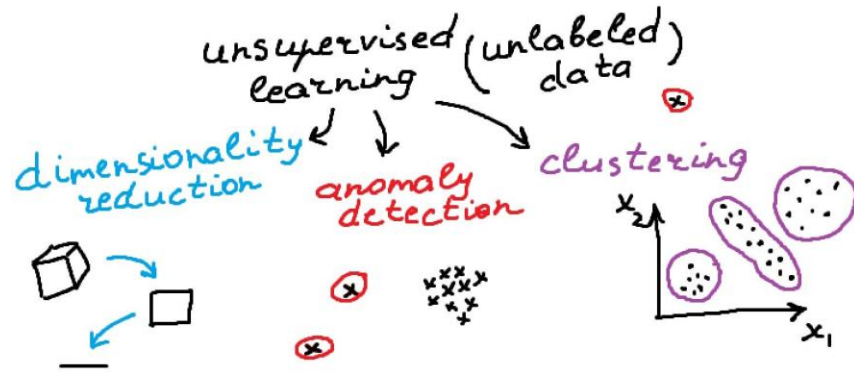 unsupervised learning (unlabeled data)
dimensionality reduction
anomaly detection
clustering
x₂
x₁